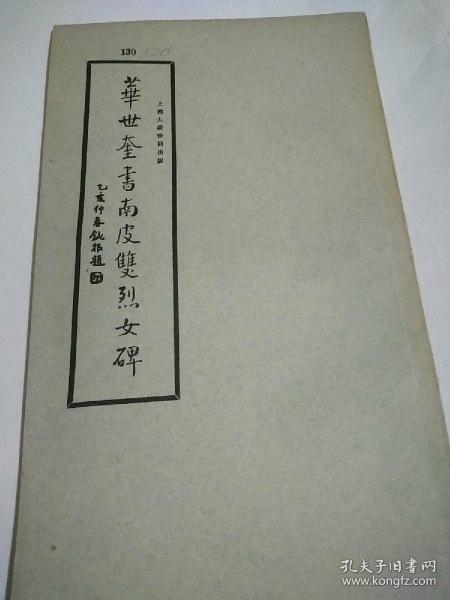 130 120
上海大眾書局出版
華世奎書南皮雙烈女碑
乙亥仲春鈍根題
孔夫子旧书网
www.kongfz.com